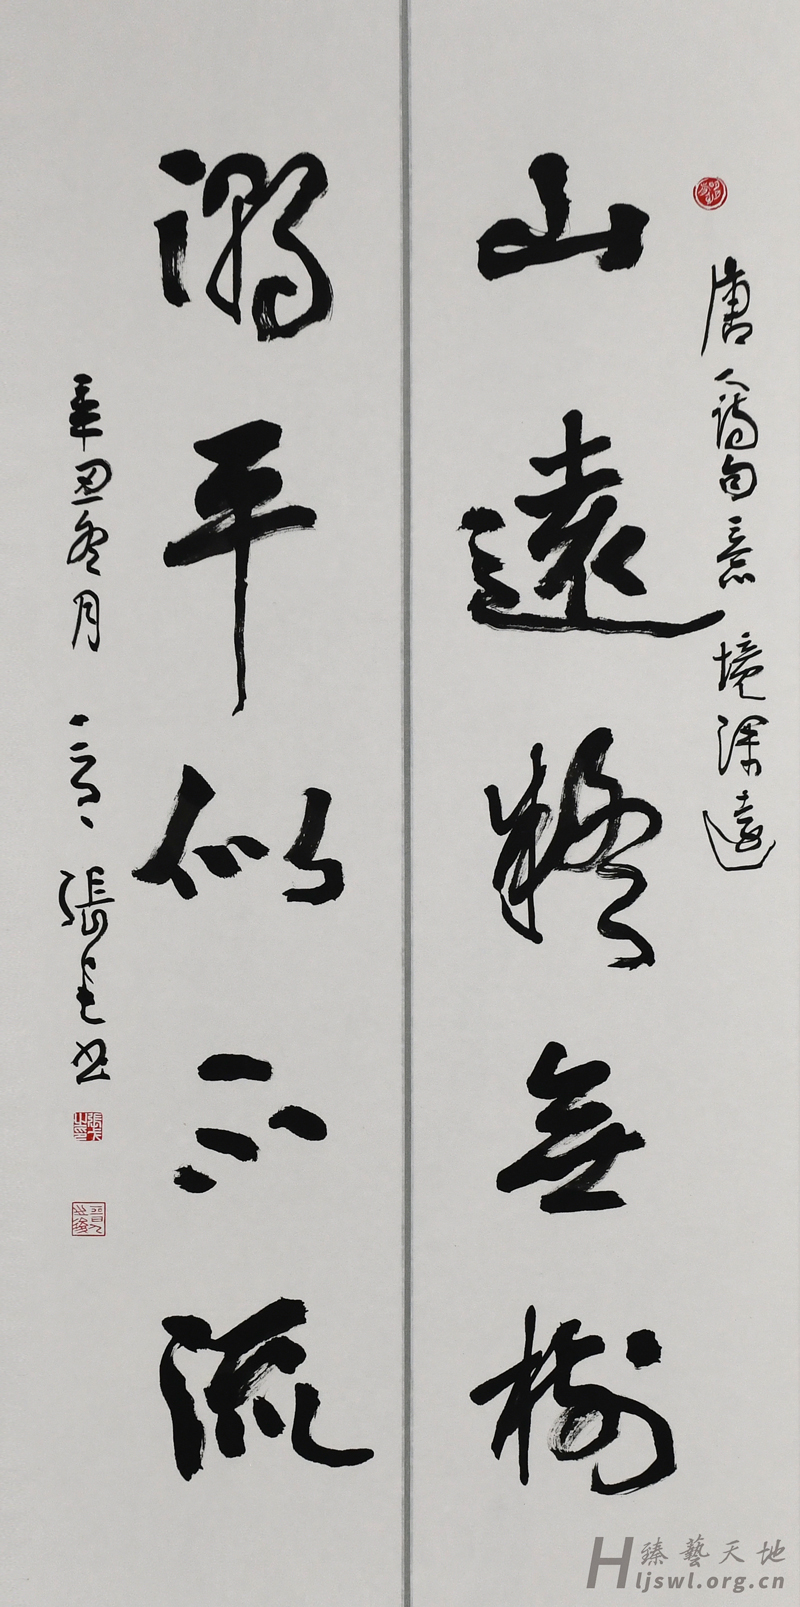 唐人詩句意境深遠
山遠疑無樹
潮平似不流
辛丑冬月 張 書
臻藝天地
Hljswl.org.cn